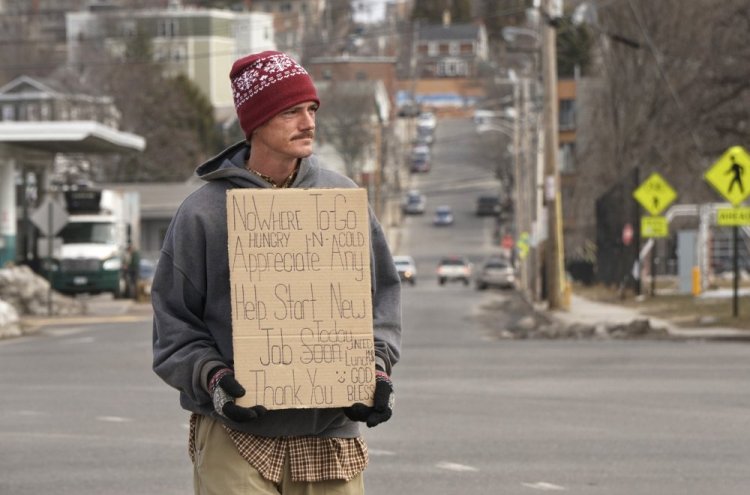 NoWHere To-Go
HUNGRY -N- COLD
Appreciate Any
Help Start New
Today
Job Soon NEED
LUNCH
Thank You GOD
BLESS